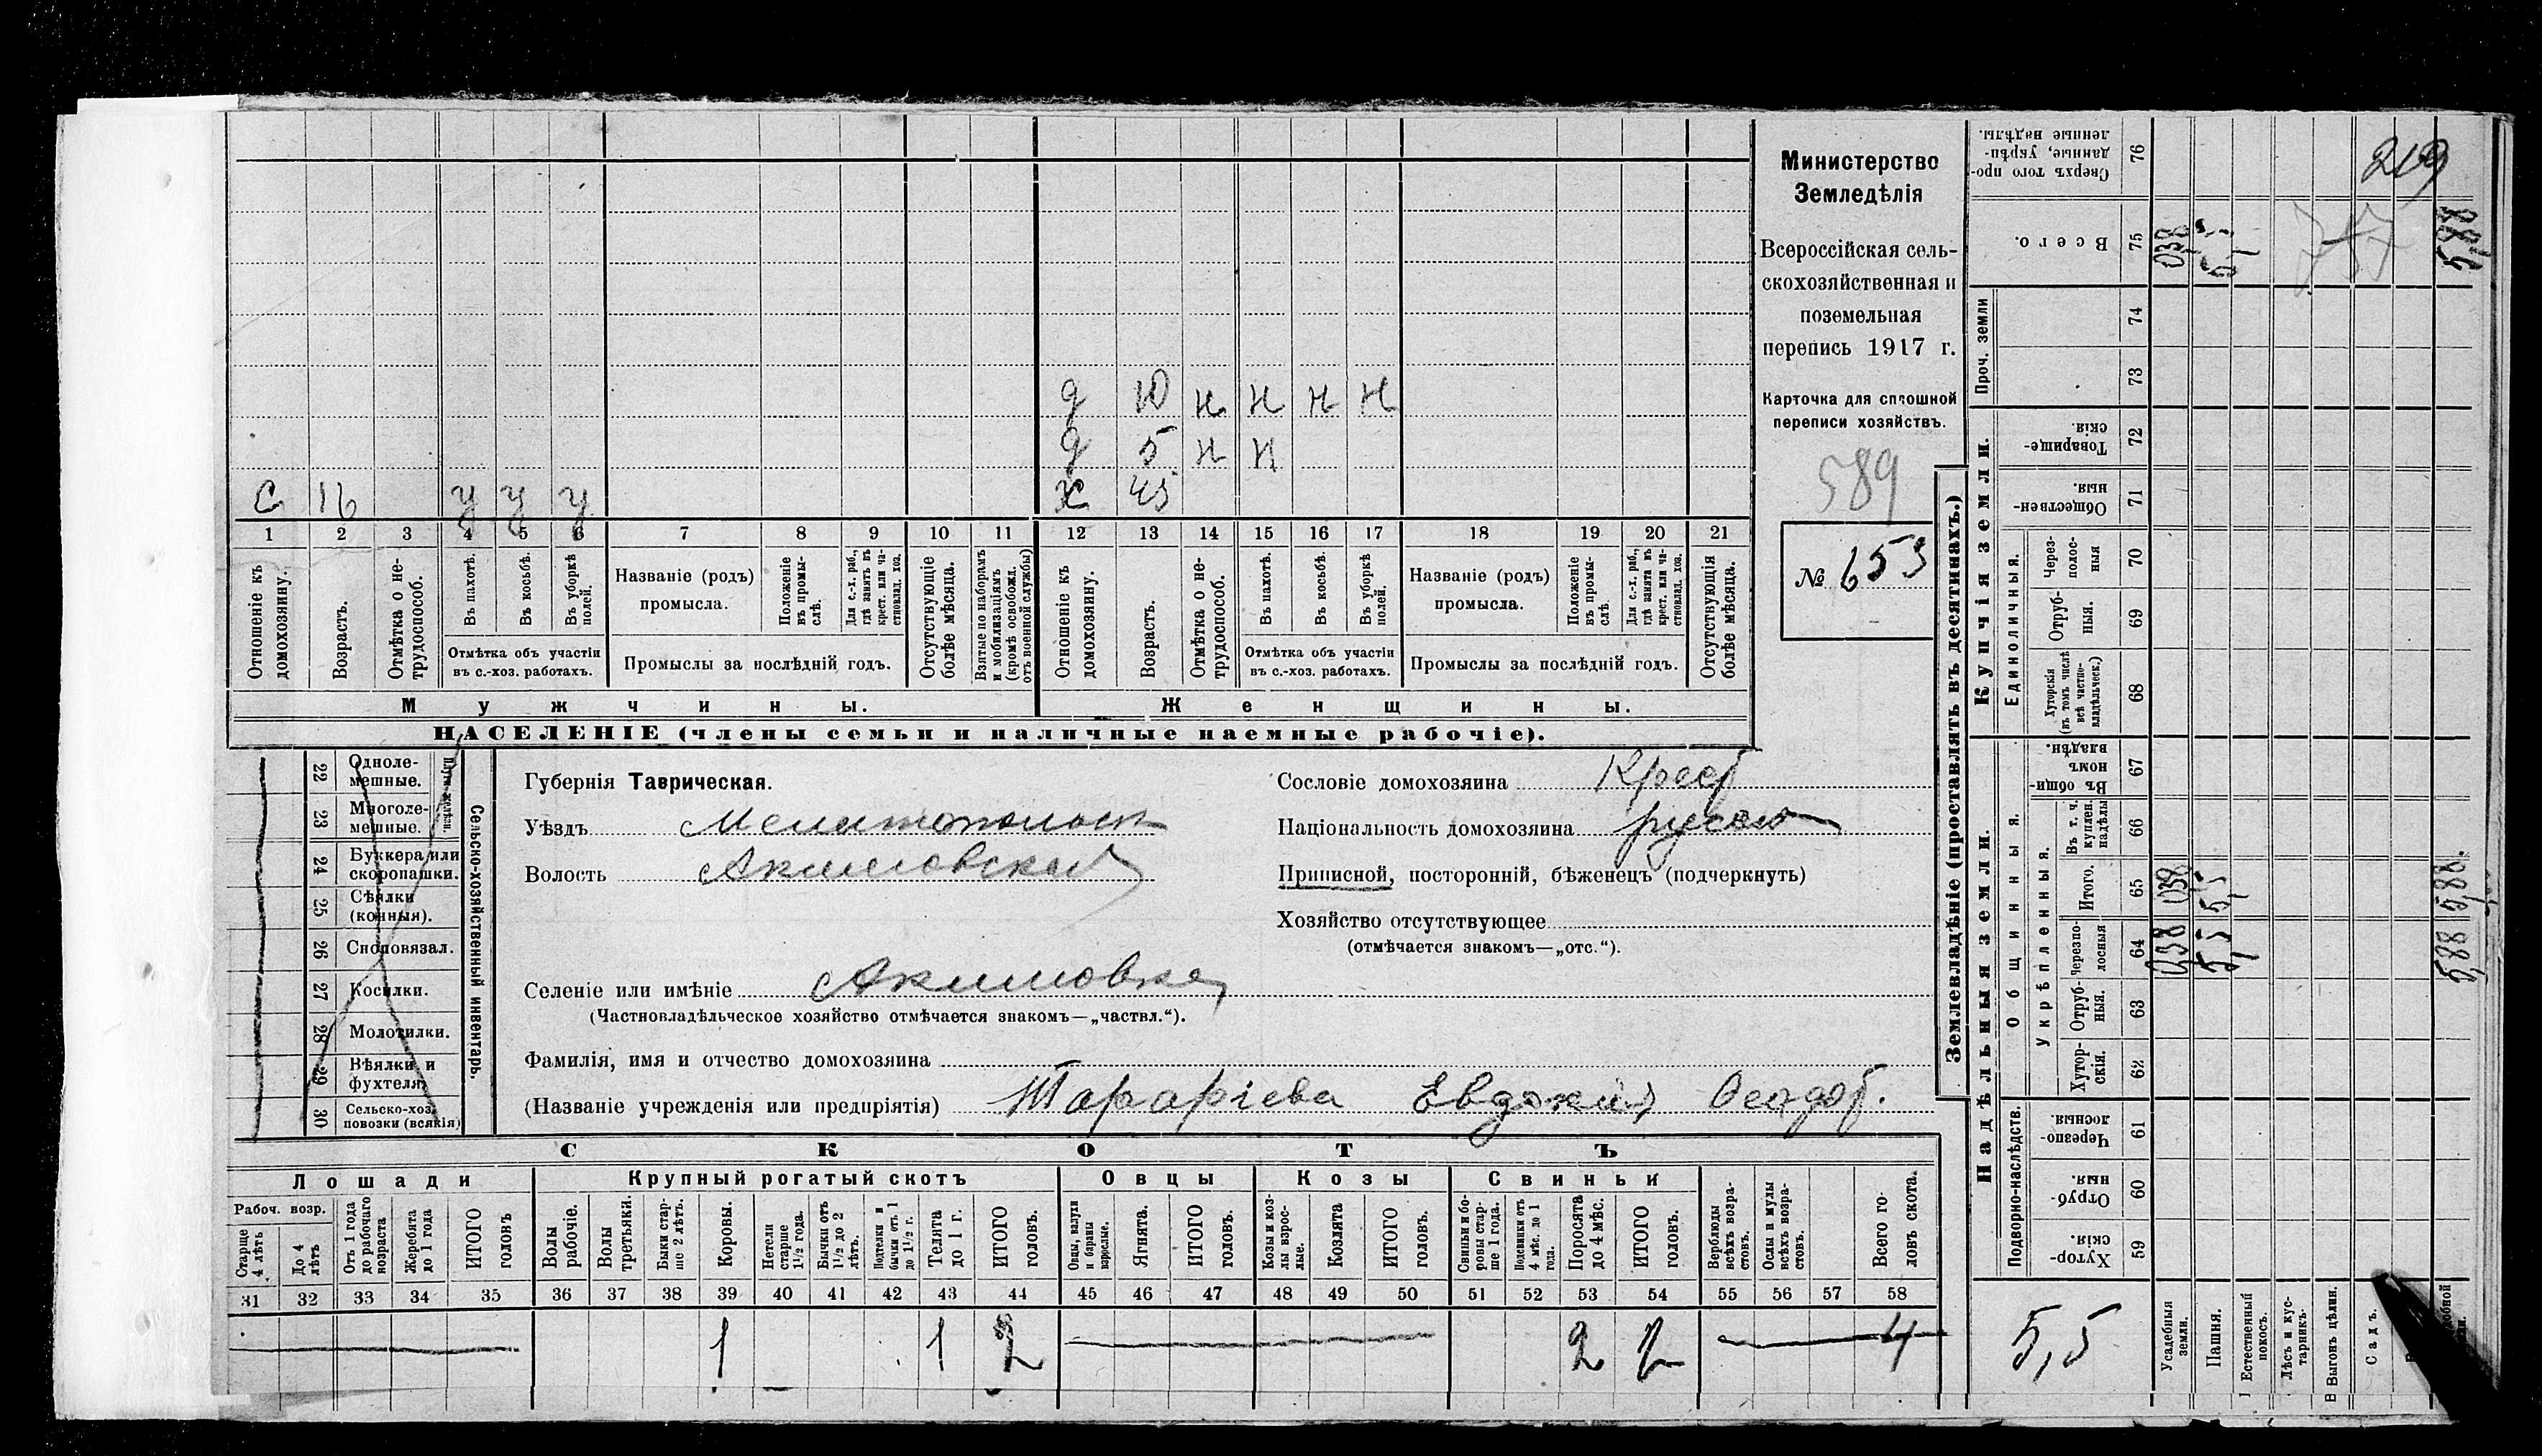 Министерство
Земледѣлія
Всероссійская сель-
скохозяйственная и
поземельная
перепись 1917 г.
Карточка для сплошной
переписи хозяйствъ.
589
№ 653
д 10 н н н н
д 5 н н
с 16 у у у х 45
1 2 3 4 5 6 7 8 9 10 11 12 13 14 15 16 17 18 19 20 21
Отношеніе къ домохозяину.
Возрастъ.
Отмѣтка о не-трудоспособ.
Въ пахотѣ.
Въ косьбѣ.
Въ уборкѣ полей.
Отмѣтка объ участіи
въ с.-хоз. работахъ.
Названіе (родъ)
промысла.
Положеніе въ промы-слѣ.
Для с.-х. раб., гдѣ занятъ въ крест. или ча-стновлад. хоз.
Промыслы за послѣдній годъ.
Отсутствующіе болѣе мѣсяца.
Взятые по наборамъ и мобилизаціямъ (кромѣ освобожд. отъ военной службы)
Отношеніе къ домохозяину.
Возрастъ.
Отмѣтка о не-трудоспособ.
Въ пахотѣ.
Въ косьбѣ.
Въ уборкѣ полей.
Отмѣтка объ участіи
въ с.-хоз. работахъ.
Названіе (родъ)
промысла.
Положеніе въ промы-слѣ.
Для с.-х. раб., гдѣ занята въ крест. или ча-стновлад. хоз.
Промыслы за послѣдній годъ.
Отсутствующія болѣе мѣсяца.
Мужчины. Женщины.
НАСЕЛЕНІЕ (члены семьи и наличные наемные рабочіе).
Сельско-хозяйственный инвентарь.
22 Одноле-мешные.
23 Многоле-мешные.
24 Буккера или скоропашки.
25 Сѣялки (конныя).
26 Сноповязал.
27 Косилки.
28 Молотилки.
29 Вѣялки и фухтеля
30 Сельско-хоз. повозки (всякія)
Губернія Таврическая.
Уѣздъ Мелитопольск
Волость Акимовская
Селеніе или имѣніе Акимовка
(Частновладѣльческое хозяйство отмѣчается знакомъ—„частвл.“).
Сословіе домохозяина Крест
Національность домохозяина русская
Приписной, посторонній, бѣженецъ (подчеркнуть)
Хозяйство отсутствующее
(отмѣчается знакомъ—„отс.“).
Фамилія, имя и отчество домохозяина
(Названіе учрежденія или предпріятія) Тарарiева Евдокия Феодот.
СКОТЪ
Лошади Крупный рогатый скотъ Овцы Козы Свиньи
Рабоч. возр.
Старше 4 лѣтъ
До 4 лѣтъ
Отъ 1 года до рабочаго возраста
Жеребята до 1 года
ИТОГО головъ
Волы рабочіе.
Волы третьяки.
Быки стар-ше 2 лѣтъ.
Коровы.
Нетели старше 1½ года.
Бычки отъ 1½ до 2 лѣтъ.
Подтелки и бычки отъ 1 до 1½ г.
Телята до 1 г.
ИТОГО головъ.
Овцы, валухи и бараны взрослые.
Ягнята.
ИТОГО головъ.
Козы и коз-лы взрос-лые.
Козлята
ИТОГО головъ.
Свиньи и бо-ровы стар-ше 1 года.
Подсвинки отъ 4 мѣс. до 1 года.
Поросята до 4 мѣс.
ИТОГО головъ.
Верблюды всѣхъ возра-стовъ.
Ослы и мулы всѣхъ возра-стовъ.
Всего го-ловъ скота.
31 32 33 34 35 36 37 38 39 40 41 42 43 44 45 46 47 48 49 50 51 52 53 54 55 56 57 58
1 1 2 2 2 4
Землевладѣніе (проставлять въ десятинахъ.)
Купчія земли.
Надѣльныя земли.
Проч. земли
Единоличныя.
Общинныя.
Укрѣпленныя.
Подворно-наслѣдств.
76 Сверхъ того про-данные, укрѣп-ленные надѣлы.
75 Всего. 038 5,5 5,88
74
73
72 Товарище-скія.
71 Обществен-ныя.
70 Через-полос-ныя
69 Отруб-ныя.
68 Хуторскія (въ томъ числѣ всѣ частно-владѣльческ.)
67 Въ общин-номъ владѣн.
66 Въ т. ч. куплен. надѣлы
65 Итого. 038 5,5 5,88.
64 Черезпо-лосныя 038 5,5 5,88
63 Отруб-ныя.
62 Хутор-скія.
61 Черезпо-лосныя.
60 Отруб-ныя.
59 Хутор-скія.
5,5
Усадебныя земли.
Пашня.
Естественный покосъ.
Лѣсъ и кус-тарникъ.
Выгонъ цѣлин.
Садъ.
219
757